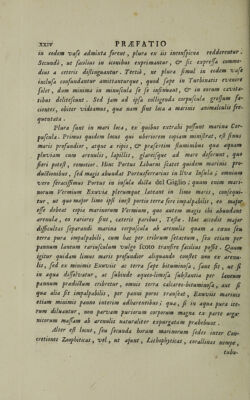 XXIV PRÆFATIO
in eodem vase admixta forent, plura ex iis incensissima redderentur.
Secundò, ut facilius in iconibus exprimantur, & sic expressa commodius
a ceteris distinguantur. Tertiò, ne plura simul in eodem vase
inclusa confundantur amittanturque, quod sæpe in Turbinatis evenire
solet, dum minima in minusculа se se insinuant, & in eorum cavitatibus
delitescunt. Sed jam ad ipsa colligenda corpuscula gressum facientes,
obiter videamus, qua nam sint loca a marinis animalculis frequentata.
Plura sunt in mari loca, ex quibus extrahi possunt marina Corpuscula.
Primus quidem locus qui uberiorem copiam ministret, est sinus
maris profundior, atque a ripis, & præsertim fluminibus qua aquam
pluviam cum arenulis, lapillis, glareisque ad mare deferunt, quo
fieri potest, remotior. Hinc Portus Liburni scatet quidem marinis productionibus,
sed magis abundat Portusferrarius in Ilva Insula; omnium
vero feracissimus Portus in insula dicta del Giglio; quum enim marinorum
Vermium Exuviæ plerumque lateant in limo maris, consequitur,
ut quo major limo ipsi inest portio terræ sive impalpabilis, eo major
esse debeat copia marinorum Vermium, quo autem magis ibi abundant
arenulæ, eo rariores sint, ceteris paribus, Testæ. Huc accedit major
difficultas separandi marina corpuscula ab arenulis quam a cæno seu
terra pura impalpabili, cum hæc per cribrum setaceum, seu etiam per
pannum laneum rariusculum vulgo stamigna transire facilius possit. Quum
igitur quidam limus maris profundior aliquando constet non ex arenulis,
sed ex minimis Exuviis ac terra sæpe bituminosa, sane fit, ut si
in aqua dissolvatur, ac subinde aqueo-limosa substantia per laneum
pannum prædictum cribretur, omnis terra calcareo-bituminosa, aut si
qua alia sit impalpabilis, per panni poros transeat, Exuviis marinis
etiam minimis panno interim adhærentibus; quæ, si in aqua pura iterum
diluantur, non parvam puriorum corporum magna ex parte organicorum
massam ab arenulis naturaliter expurgatam præbebunt.
Alter est locus, seu secunda horum marinorum sedes inter Concretiones
Zoophyticas, vel, ut ajunt, Lithophyticas, corallinas nempe,
tubu-